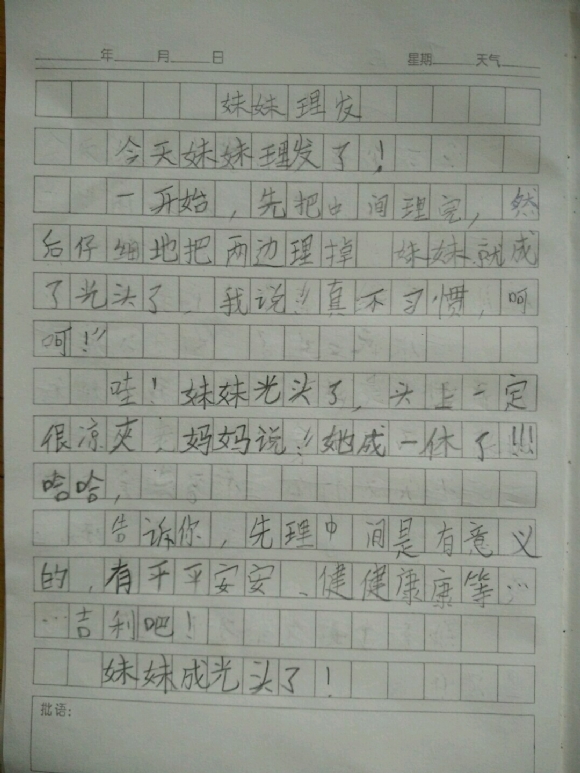 年 月 日 星期 天气
妹妹理发
今天妹妹理发了！
一开始，先把中间理完，然
后仔细地把两边理掉 妹妹就成
了光头了，我说“真不习惯，呵
呵！”
哇！妹妹光头了，头上一定
很凉爽．妈妈说：“她成一休了!!!
哈哈，
告诉你，先理中间是有意义
的，有平平安安、健健康康等…
…吉利吧！
妹妹成光头了！
批语：